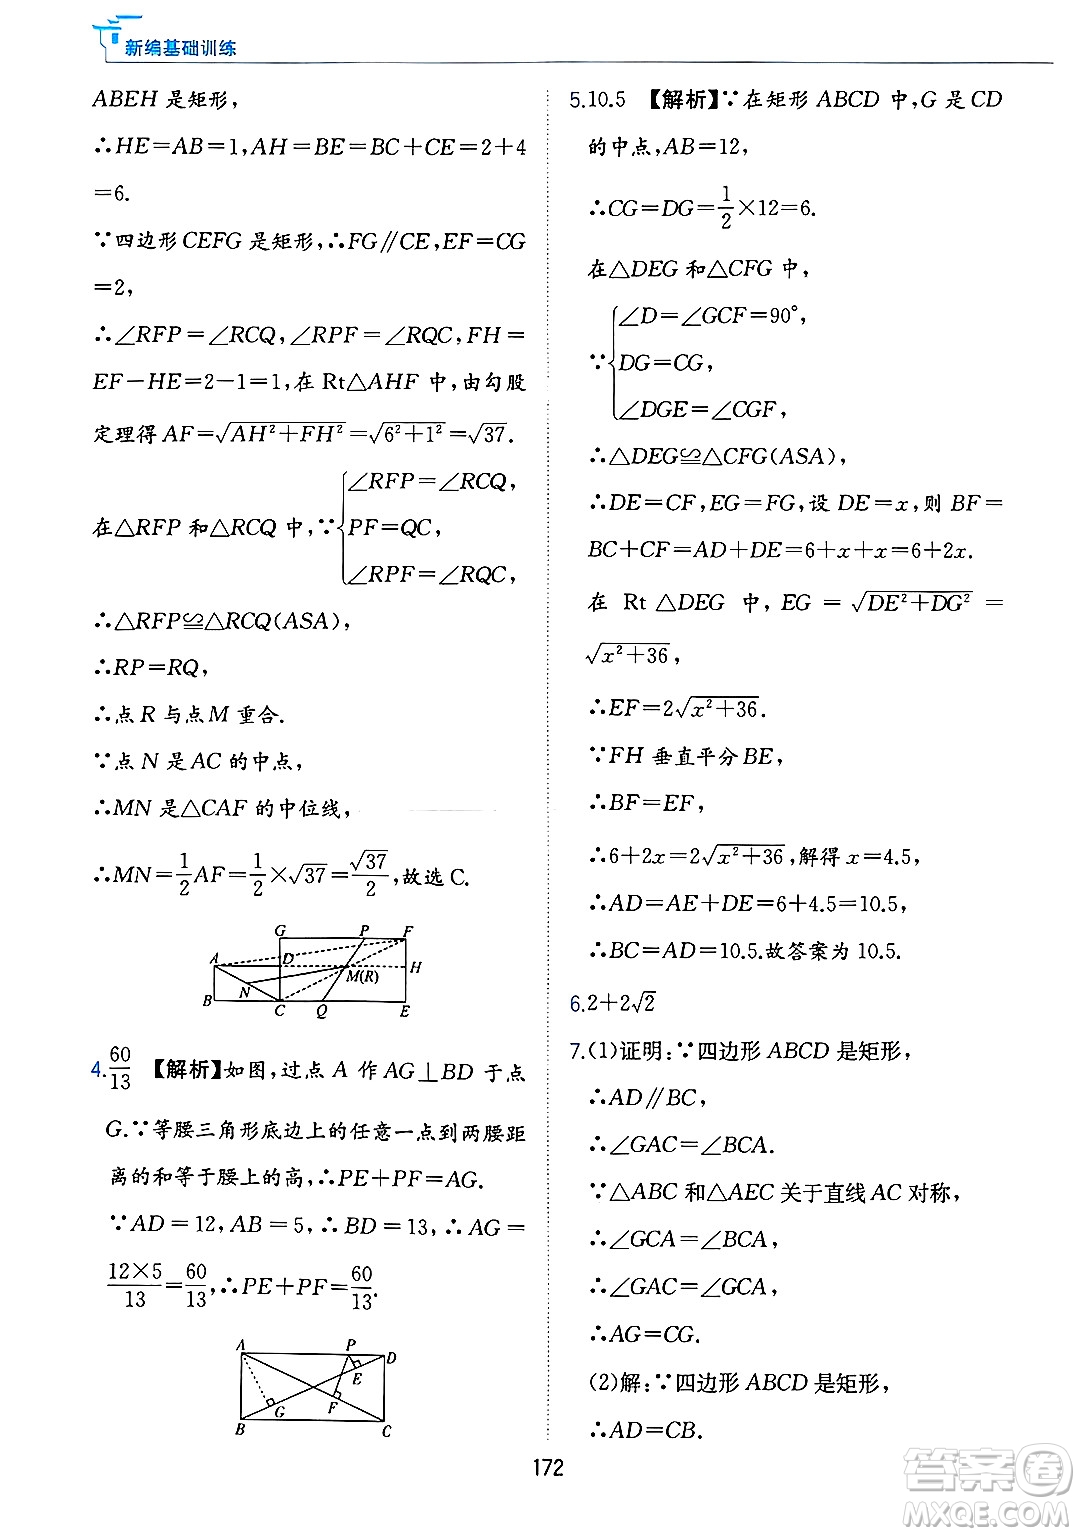 新编基础训练
ABEH 是矩形,
∴HE=AB=1,AH=BE=BC+CE=2+4
=6.
∵四边形 CEFG 是矩形,∴FG∥CE,EF=CG
=2,
∴∠RFP=∠RCQ,∠RPF=∠RQC,FH=
EF-HE=2-1=1,在 Rt△AHF 中,由勾股
定理得 AF=√(AH²+FH²)=√(6²+1²)=√37.
在△RFP 和△RCQ 中,∵{∠RFP=∠RCQ,
PF=QC,
∠RPF=∠RQC,
∴△RFP≌△RCQ(ASA),
∴RP=RQ,
∴点 R 与点 M 重合.
∵点 N 是 AC 的中点,
∴MN 是△CAF 的中位线,
∴MN=1/2AF=1/2×√37=√37/2,故选 C.
G P F
A D M(R) H
N
B C Q E
4.60/13 【解析】如图,过点 A 作 AG⊥BD 于点
G.∵等腰三角形底边上的任意一点到两腰距
离的和等于腰上的高,∴PE+PF=AG.
∵AD=12,AB=5,∴BD=13,∴AG=
12×5/13=60/13,∴PE+PF=60/13.
A P D
E
G F
B C
5.10.5 【解析】∵在矩形 ABCD 中,G 是 CD
的中点,AB=12,
∴CG=DG=1/2×12=6.
在△DEG 和△CFG 中,
∵{∠D=∠GCF=90°,
DG=CG,
∠DGE=∠CGF,
∴△DEG≌△CFG(ASA),
∴DE=CF,EG=FG,设 DE=x,则 BF=
BC+CF=AD+DE=6+x+x=6+2x.
在 Rt△DEG 中,EG=√(DE²+DG²)=
√(x²+36),
∴EF=2√(x²+36).
∵FH 垂直平分 BE,
∴BF=EF,
∴6+2x=2√(x²+36),解得 x=4.5,
∴AD=AE+DE=6+4.5=10.5,
∴BC=AD=10.5.故答案为 10.5.
6.2+2√2
7.(1)证明:∵四边形 ABCD 是矩形,
∴AD∥BC,
∴∠GAC=∠BCA.
∵△ABC 和△AEC 关于直线 AC 对称,
∴∠GCA=∠BCA,
∴∠GAC=∠GCA,
∴AG=CG.
(2)解:∵四边形 ABCD 是矩形,
∴AD=CB.
172
答案卷
MXQE.COM